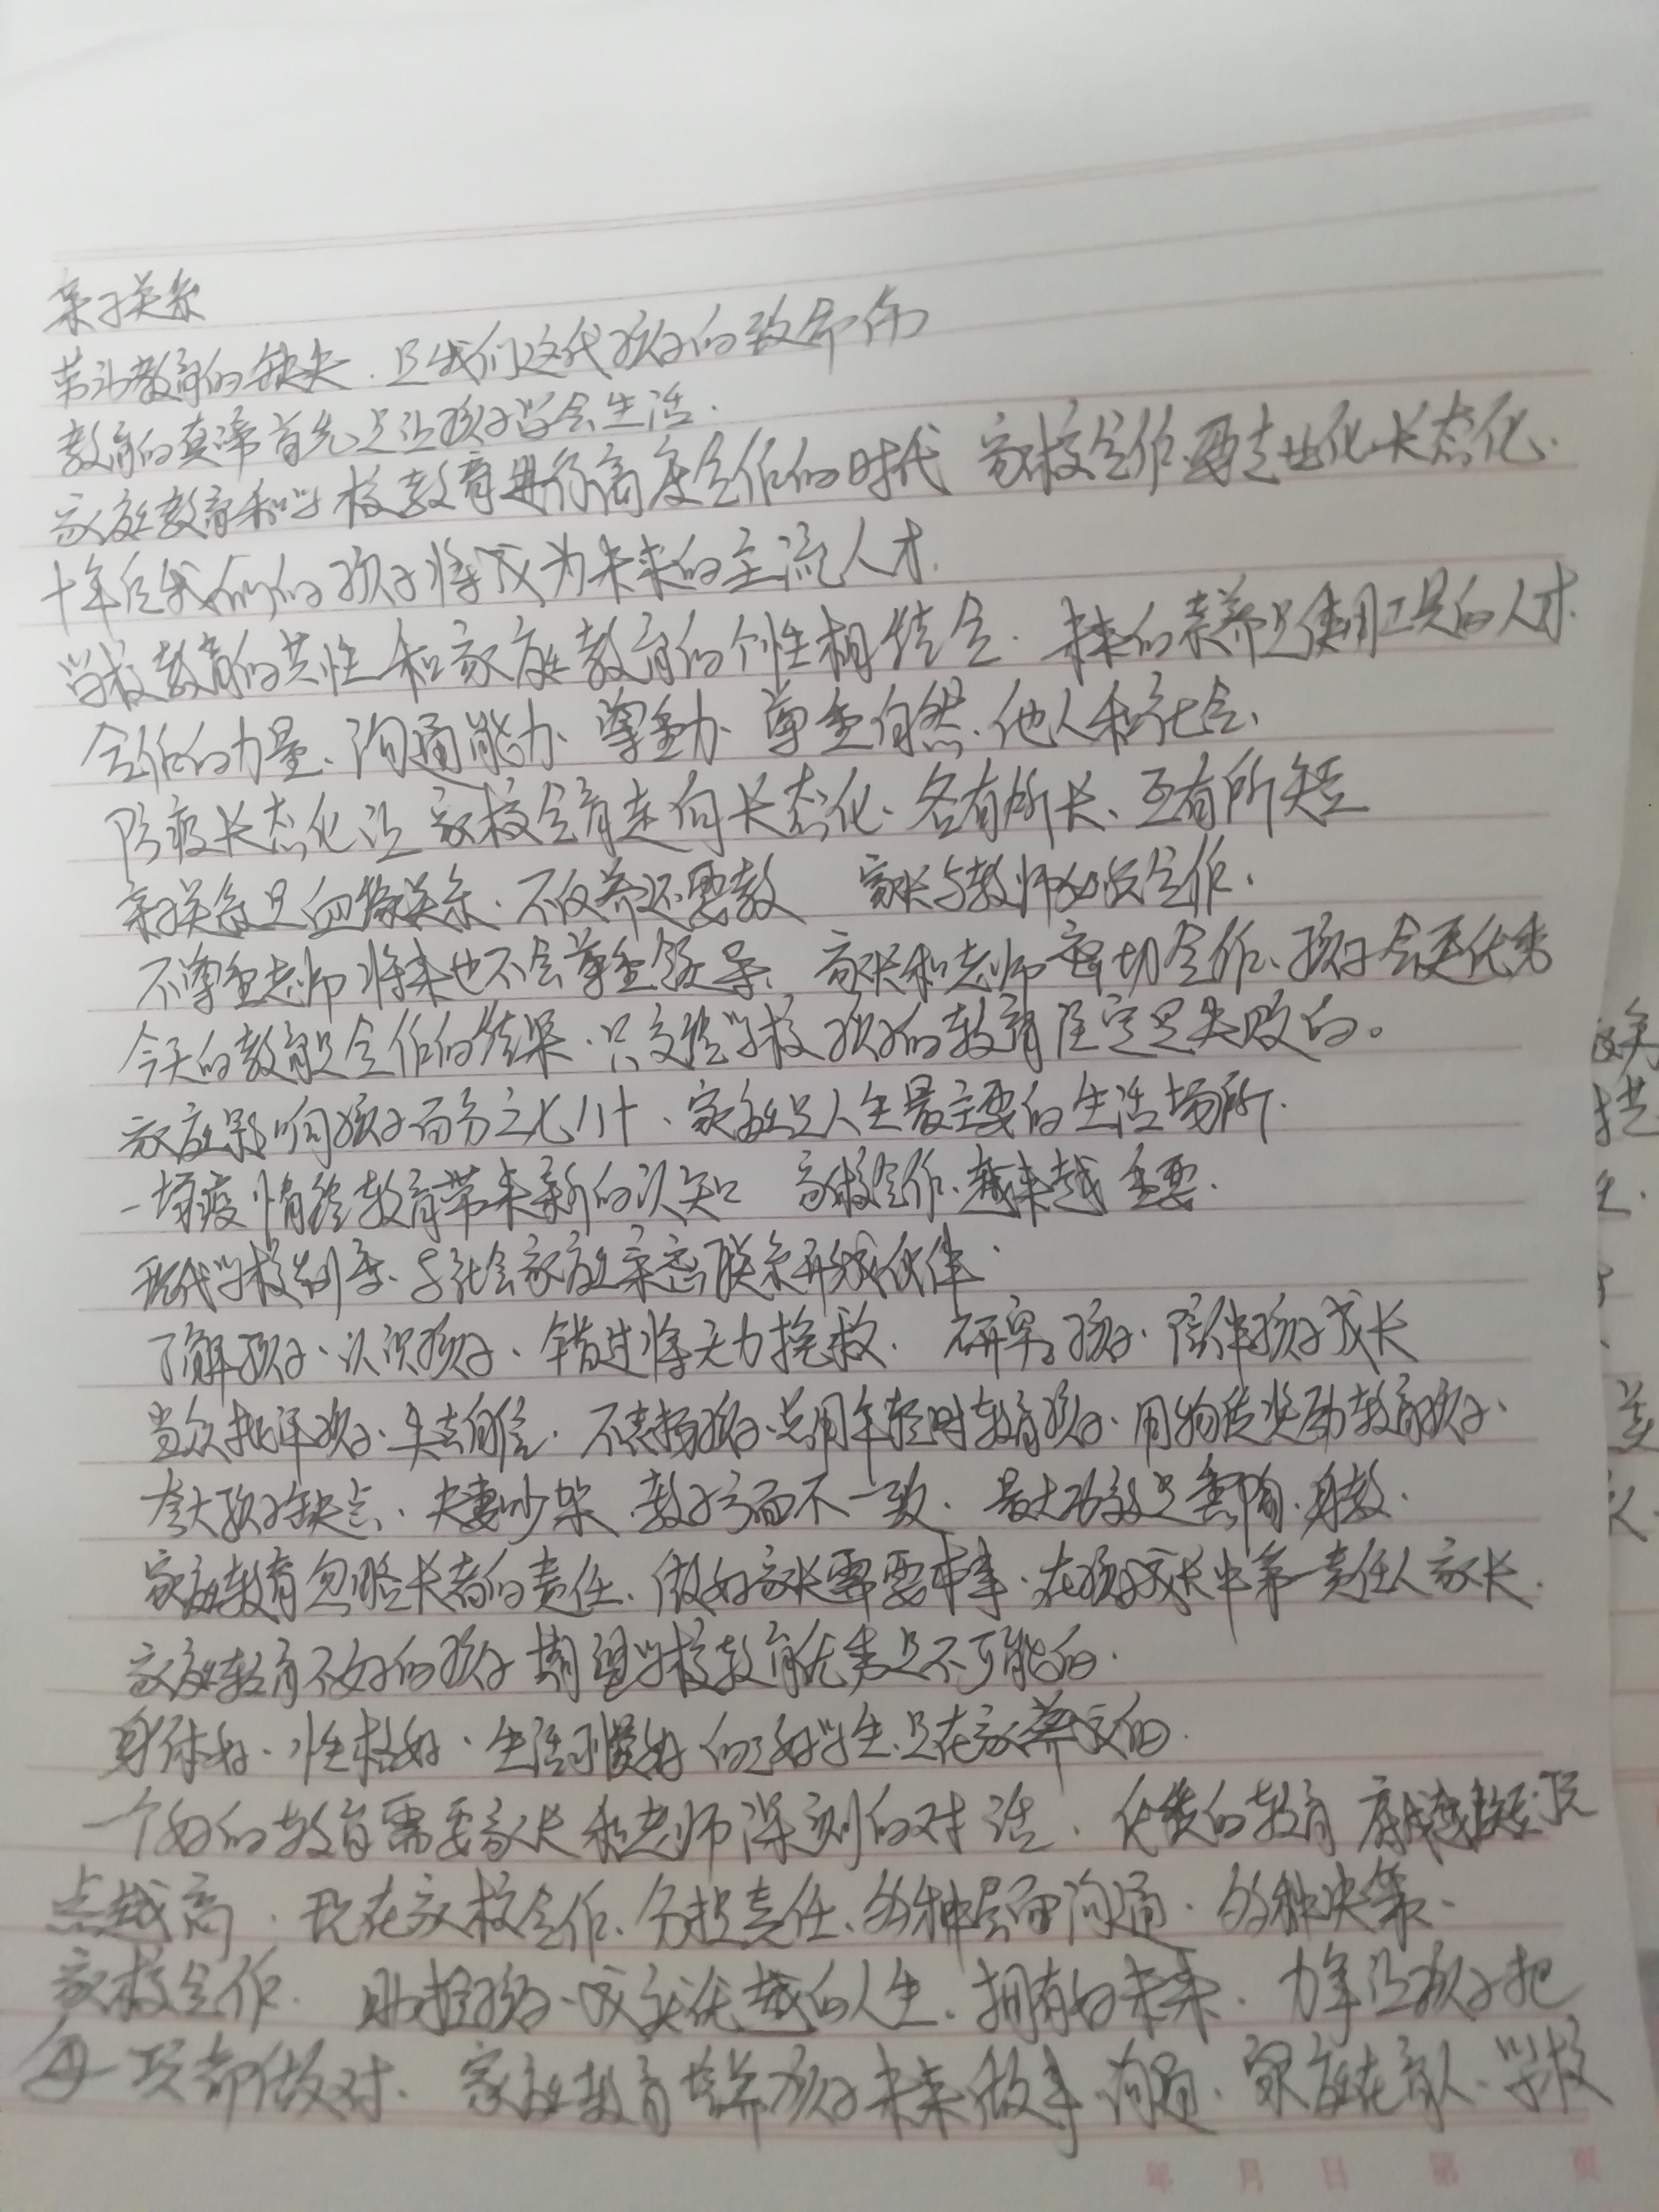 亲子关系
劳动教育的缺失.是我们这代孩子的致命伤
教育的真谛首先是让孩子学会生活.
家庭教育和学校教育进行高度合作的时代 家校合作.要专业化.长态化.
十年后我们的孩子将成为未来的主流人才.
学校教育的共性和家庭教育的个性相结合.未来的素养是使用工具的人才.
合作的力量、沟通能力、尊重力、尊重自然、他人和社会、
防疫长态化让家校合育走向长态化、各有所长、互有所短
亲子关系是血缘关系.不仅养还要教 家长与教师合作.
不尊重老师将来也不会尊重领导、家长和老师密切合作、孩子会更优秀
今天的教育是合作的结果.只交给学校孩子的教育注定是失败的。
家庭影响孩子百分之七八十、家庭是人生最主要的生活场所.
一场疫情给教育带来新的认知 家校合作.越来越重要.
现代学校制度、与社会家庭亲密联系形成伙伴.
了解孩子、认识孩子、错过将无力挽救. 研究孩子.陪伴孩子成长
当众批评孩子.失去自信.不表扬孩子.总用年轻时教育孩子.用物质奖励教育孩子、
夸大孩子缺点.夫妻吵架.教子方面不一致.最大功效是熏陶.身教.
家庭教育忽略长者的责任.做好家长需要本事.在孩子成长中第一责任人家长.
家庭教育不好的孩子期望学校教育优秀是不可能的.
身体好.性格好.生活习惯好的三好学生.是在家养成的.
一个好的教育需要家长和老师深刻的对话.优质的教育
点越高.现在家校合作、分担责任、多种层面沟通.多种决策、
家校合作. 助推孩子.成就优越的人生.拥有好未来.力争让孩子把
每一项都做对.家庭教育培养孩子未来做事 沟通.家庭在育人.学校
年 月 日 第 页